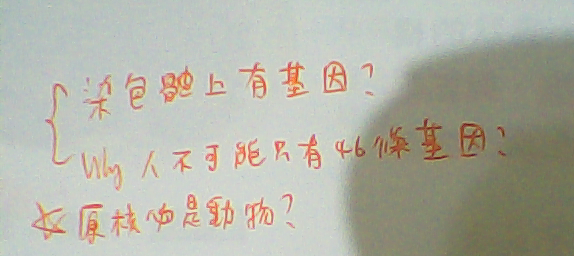 染色體上有基因?
Why 人不可能只有46條基因?
☆原核物是動物?